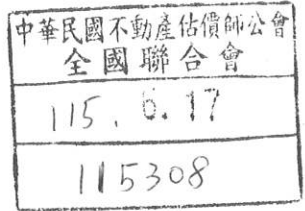 中華民國不動產估價師公會
全國聯合會
115. 6. 17
115308